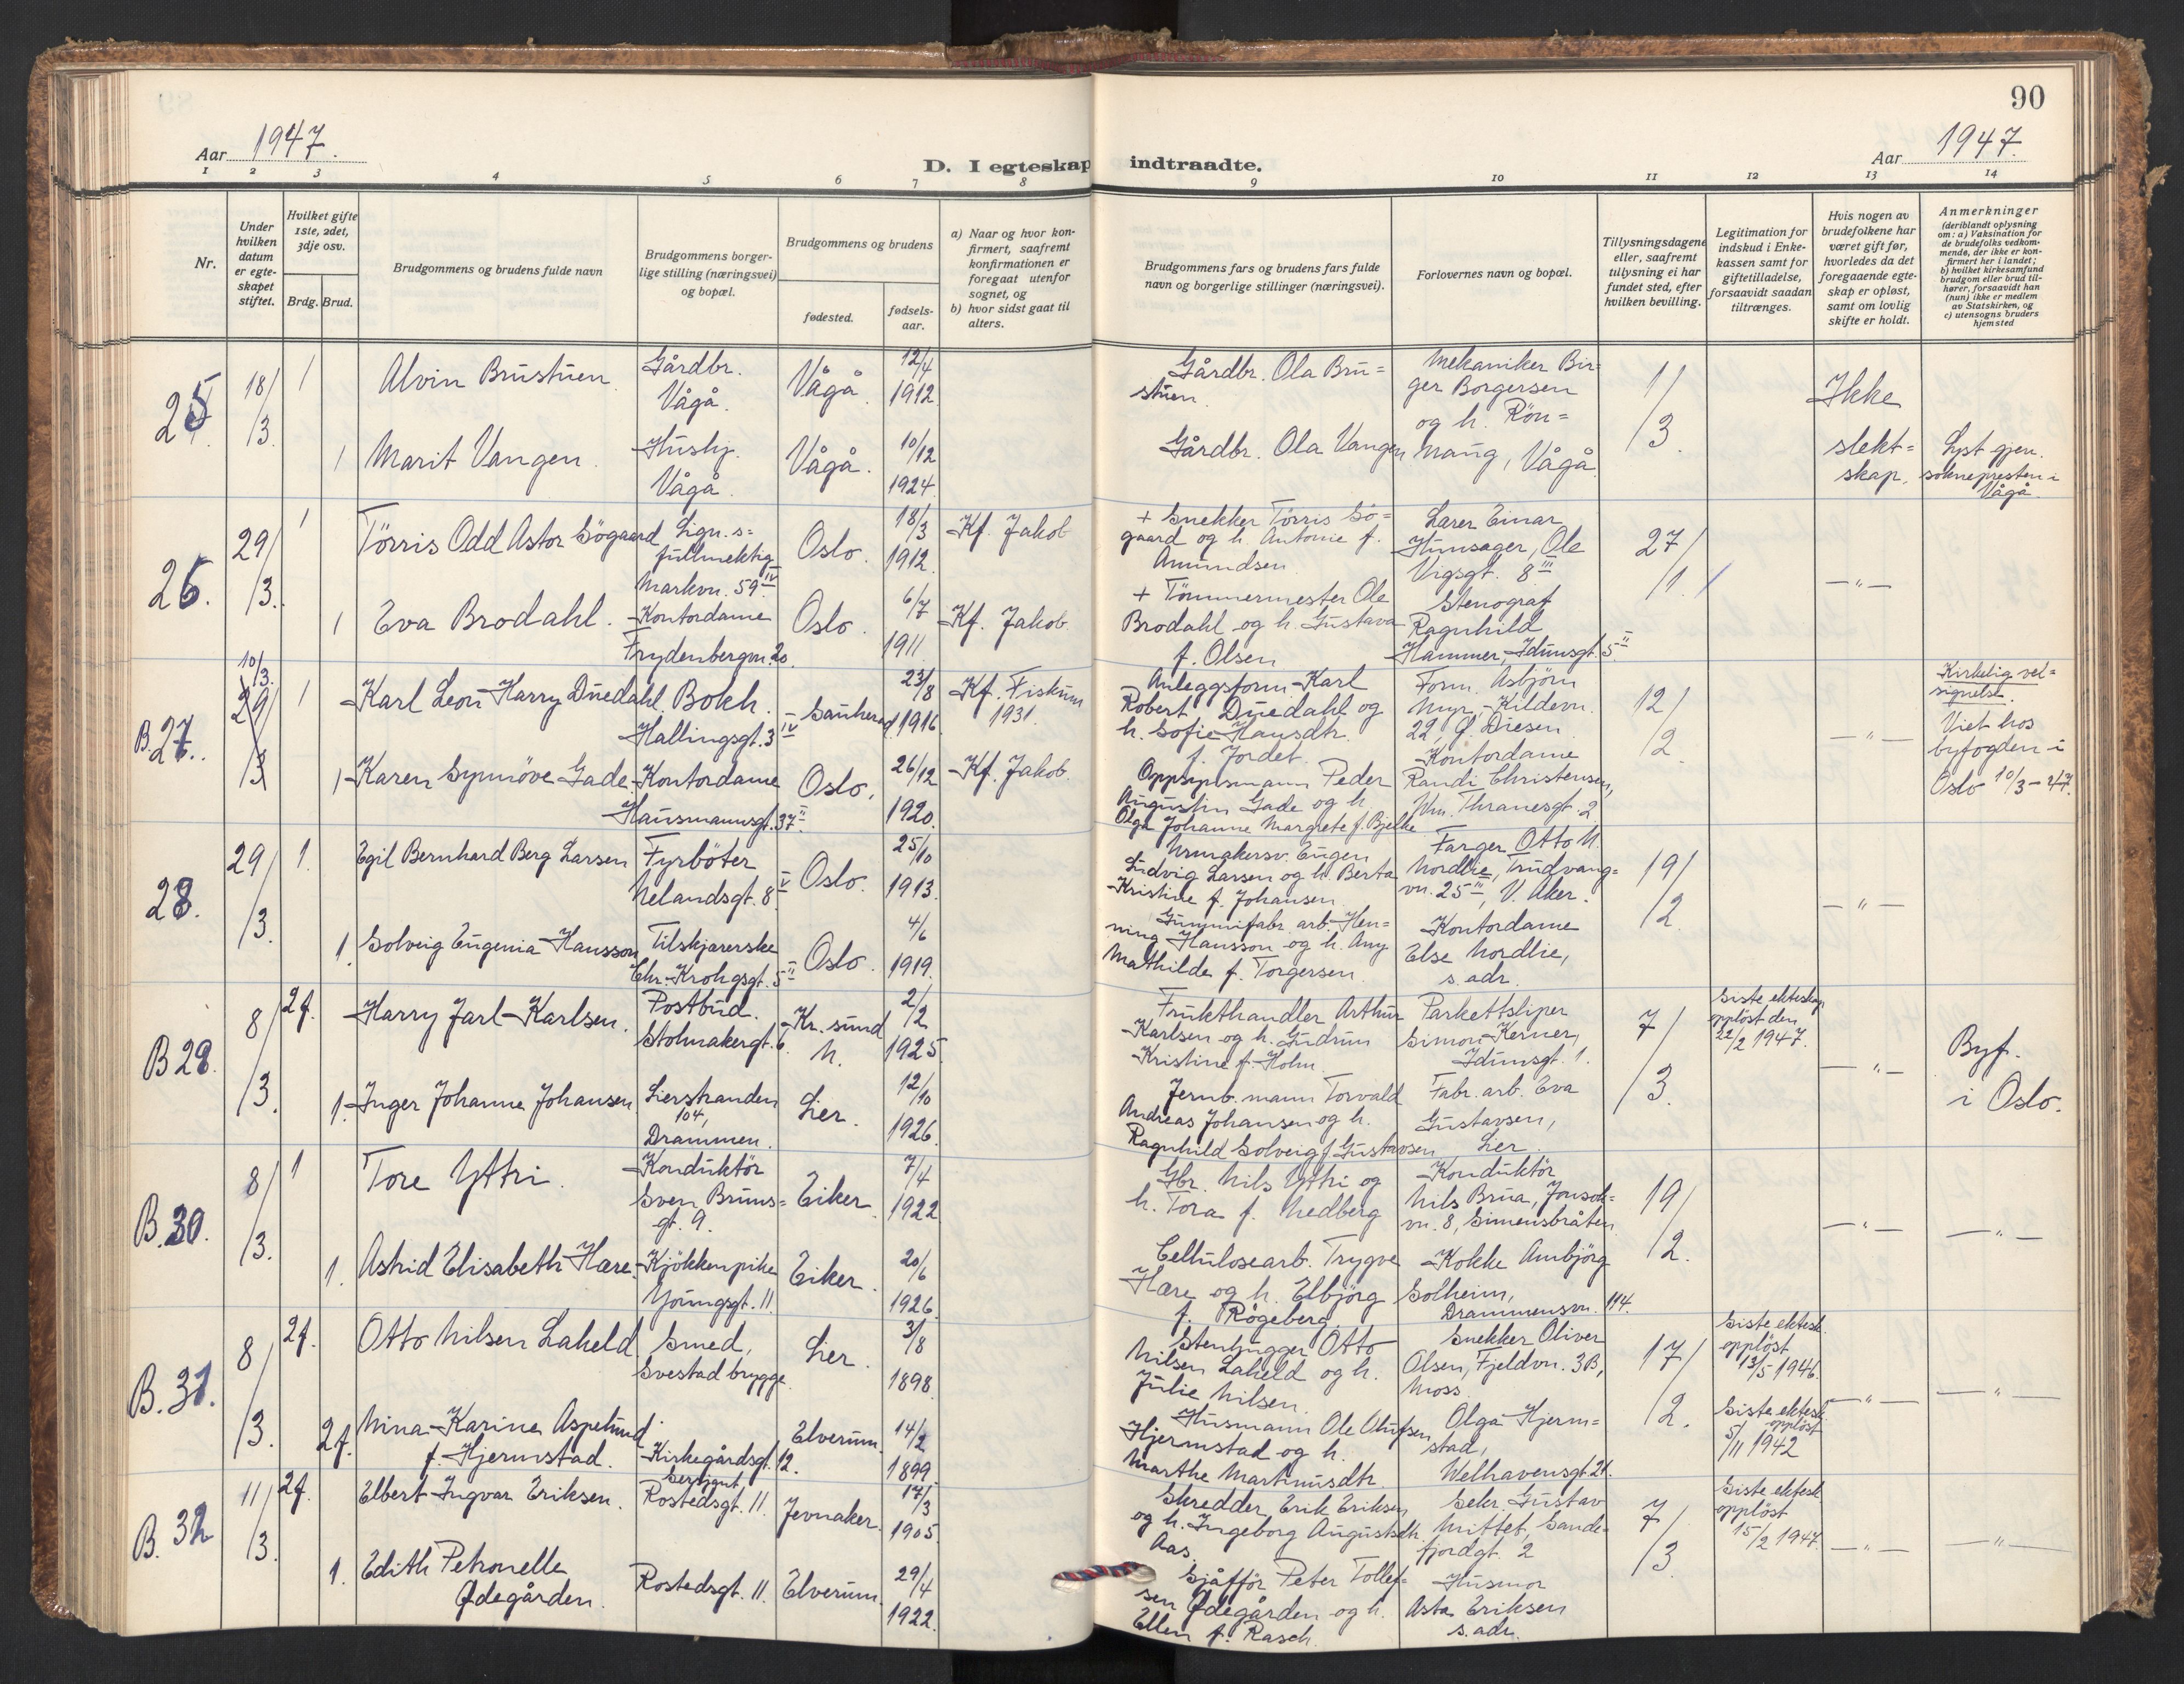 90
Aar 1947.
D. I egteskap indtraadte.
Aar 1947.
1 2 3 4 5 6 7 8 9 10 11 12 13 14
Nr.
Under hvilken datum er egteskapet stiftet.
Hvilket gifte 1ste, 2det, 3dje osv.
Brdg. Brud.
Brudgommens og brudens fulde navn
Brudgommens borgerlige stilling (næringsvei) og bopæl.
Brudgommens og brudens
fødested.
fødselsaar.
a) Naar og hvor konfirmert, saafremt konfirmationen er foregaat utenfor sognet, og
b) hvor sidst gaat til alters.
Brudgommens fars og brudens fars fulde navn og borgerlige stillinger (næringsvei).
Forlovernes navn og bopæl.
Tillysningsdagene eller, saafremt tillysning ei har fundet sted, efter hvilken bevilling.
Legitimation for indskud i Enkekassen samt for giftetilladelse, forsaavidt saadan tiltrænges.
Hvis nogen av brudefolkene har været gift før, hvorledes da det foregaaende egteskap er opløst, samt om lovlig skifte er holdt.
Anmerkninger
(deriblandt oplysning om: a) Vaksination for de brudefolks vedkommende, der ikke er konfirmert her i landet;
b) hvilket kirkesamfund brudgom eller brud tilhører, forsaavidt han (hun) ikke er medlem av Statskirken, og
c) utensogns bruders hjemsted
25. 18/3. 1 Alvin Brustuen Gårdbr. Vågå. Vågå 12/4 1912.
Gårdbr. Ola Brustuen. Mekaniker Birger Borgersen og h. Rönnaug, Vågå 1/3. Ikke slektskap.
1 Marit Vangen. Hushj. Vågå. Vågå. 10/12 1924.
Gårdbr. Ola Vangen Lyst gjen. sokneprestern i Vågå.
26. 29/3. 1 Törris Odd Astor Sögaard Lign.s=fullmektig Markvn. 59 IV Oslo. 18/3 1912. Kf. Jakob
+ Snekker Törris Sögaard og h. Antonie f. Amundsen Lærer Einar Hunsager, Ole Vigsgt. 8 III 27/1. — " —
1 Eva Brodahl. Kontordame Frydenbergvn. 20. Oslo. 6/7 1911 Kf. Jakob.
+ Tömmermester Ole Brodahl og h. Gustava f. Olsen Stenograf Ragnhild Hammer, Idunsgt. 5 II
B. 27. 10/3. 29/3 1 Karl Leon Harry Duedahl. Bokh. Hallingsgt. 3 IV Sauherad 23/8 1916. Kf. Fiskum 1931.
Anleggsform. Karl Robert Duedahl og h. Sofie Hansdtr. f. Jordet. Form. Asbjörn Myr, Kildevn. 22, Ø. Diesen 12/2. — " — Kirkelig velsignelse. Viet hos byfogden i Oslo 10/3-47.
1 Karen Synnöve Gade. Kontordame Hausmannsgt. 37 II. Oslo. 26/12 1920. Kf. Jakob.
Oppsynsmann Peder Augustin Gade og h. Olga Johanne Margrete f. Bjelke Kontordame Randi Christensen, Wm. Thranesgt. 2.
28. 29/3. 1. Egil Bernhard Berg Larsen Fyrböter Nelandsgt. 8 V Oslo. 25/10 1913.
Urmakersv. Eugen Ludvig Larsen og h. Berta Kristine f. Johansen Farger Otto M. Nordlie, Trudvangvn. 25 III, V. Aker. 19/2. — " —
1. Solveig Eugenia Hansson Tilskjærerske Chr. Krohgsgt. 5 II Oslo. 4/6 1919.
Gummifabr. arb. Henning Hansson og h. Any Mathilde f. Torgersen Kontordame Else Nordlie, s. adr.
B 29. 8/3. 2 f. Harry Jarl Karlsen. Postbud. Stolmakergt. 6. Kr. sund N. 2/2 1925.
Frukthandler Arthur Karlsen og h. Gudrun Kristine f. Holm. Parkettsliper Simon Kerner, Idunsgt. 1. 7/3. Siste ekteskap opplöst den 22/2 1947. — " — Byf. i Oslo.
1. Inger Johanne Johansen Lierstranden 104, Drammen. Lier. 12/10 1926.
Jernb. mann Torvald Andreas Johansen og h. Ragnhild Solveig f. Gustavsen Fabr. arb. Eva Gustavsen, Lier.
B. 30. 8/3. 1 Tore Yttri. Konduktör Sven Brunsgt. 9. Eiker. 7/4 1922.
Gbr. Nils Yttri og h. Tora f. Nedberg Konduktör Nils Brua, Jonsokvn. 8, Simensbråten 19/2. — " — — " —
1. Astrid Elisabeth Hære. Kjökkenpike Youngsgt. 11. Eiker. 20/6 1926.
Cellulosearb. Trygve Hære og h. Elbjörg f. Rögeberg. Kokke Ambjörg Solheim, Drammensvn. 114.
B. 31. 8/3. 2 f. Otto Nilsen Laheld Smed, Svestad brygge. Lier. 3/8 1898.
Stenhugger Otto Nilsen Laheld og h. Julie Nilsen. Snekker Oliver Olsen, Fjeldvn. 3B, Moss. 17/2. Siste ektesk. opplöst 13/5 1946. — " — — " —
2 f. Nina Karine Aspelund f. Hjermstad. Kirkegårdsgt. 12. Elverum. 14/2 1899.
Husmann Ole Olufsen Hjermstad og h. Marthe Martinusdtr. Olga Hjermstad, Welhavensgt. 21. Siste ektesk. opplöst 5/11 1942
B. 32 11/3. 2 f. Elbert Ingvar Eriksen. Sersjant Rostedsgt. 11. Jevnaker. 17/3 1905.
Skredder Erik Eriksen og h. Ingeborg Augustsdtr. Aas. Sekr. Gustav Mittet, Sandefjordgt. 2 7/3. Siste ektesk. opplöst 15/2 1947. — " — — " —
1. Edith Petronelle Ødegården. Rostedsgt. 11. Elverum. 29/4 1922.
Sjåfför Peter Tollefsen Ødegården og h. Ellen f. Rasch. Husmor Asta Eriksen s. adr.